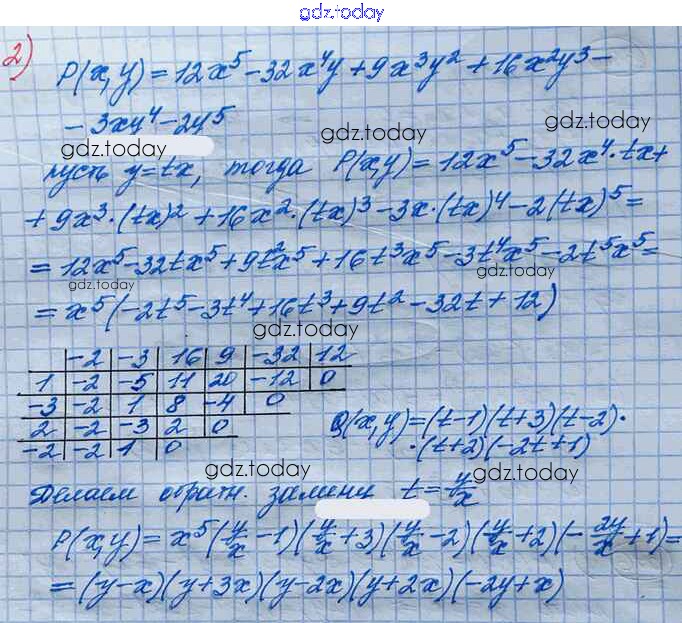 gdz.today
2)
P(x,y) = 12x⁵ - 32x⁴y + 9x³y² + 16x²y³ -
- 3xy⁴ - 2y⁵
gdz.today
gdz.today
gdz.today
пусть y=tx, тогда P(x,y) = 12x⁵ - 32x⁴·tx +
+ 9x³·(tx)² + 16x²·(tx)³ - 3x·(tx)⁴ - 2(tx)⁵ =
= 12x⁵ - 32tx⁵ + 9t²x⁵ + 16t³x⁵ - 3t⁴x⁵ - 2t⁵x⁵ =
gdz.today
gdz.today
= x⁵(-2t⁵ - 3t⁴ + 16t³ + 9t² - 32t + 12)
gdz.today
-2 -3 16 9 -32 12
1 -2 -5 11 20 -12 0
-3 -2 1 8 -4 0
2 -2 -3 2 0
-2 -2 1 0
Q(x,y) = (t-1)(t+3)(t-2)·
·(t+2)(-2t+1)
gdz.today
gdz.today
Делаем обратн. замену t = y/x
P(x,y) = x⁵(y/x - 1)(y/x + 3)(y/x - 2)(y/x + 2)(-2y/x + 1) =
= (y-x)(y+3x)(y-2x)(y+2x)(-2y+x)